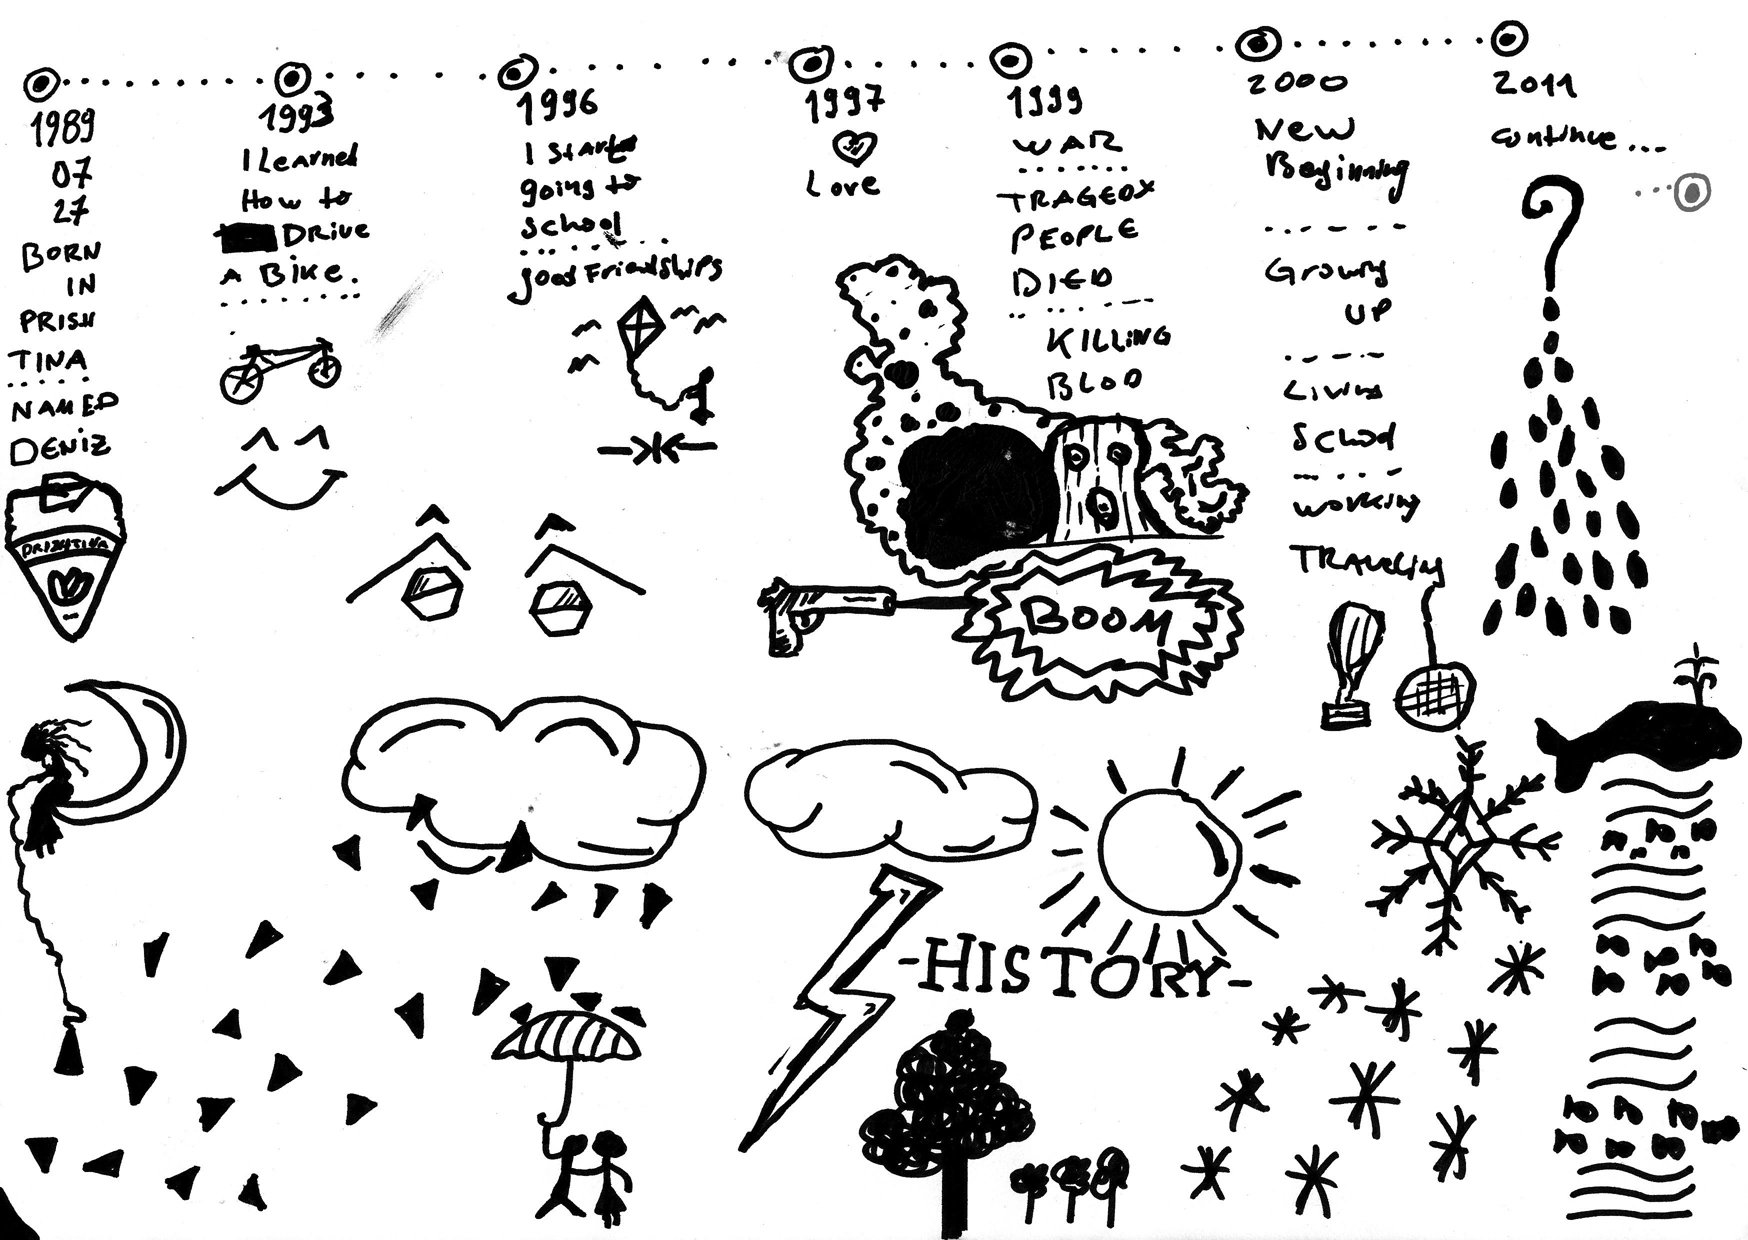 1989
07
27
BORN
IN
PRISH
TINA
NAMED
DENIZ
PRISHTINA
1993
I Learned
How to
DRIVE
A BIKE.
1996
I Start
going to
school
good Friendships
1997
Love
1999
WAR
TRAGEDY
PEOPLE
DIED
KILLING
BLOD
BOOM
2000
New
Beginning
Growing
UP
Living
School
working
TRAVELING
2011
continue...
-HISTORY-